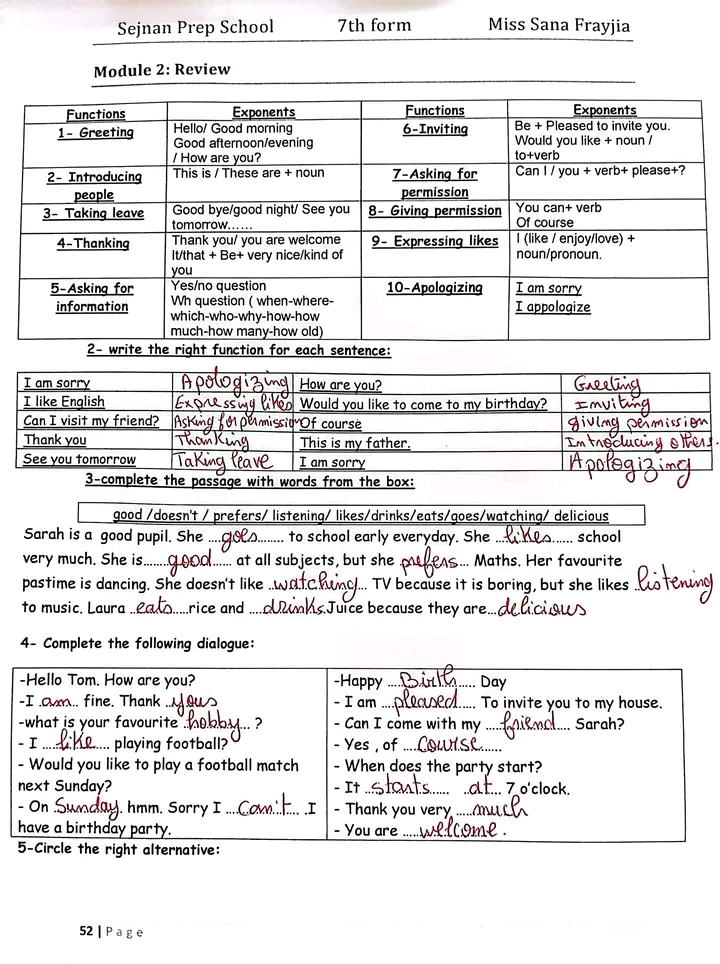 Sejnan Prep School 7th form Miss Sana Frayjia
Module 2: Review
Functions Exponents Functions Exponents
1- Greeting Hello/ Good morning
Good afternoon/evening
/ How are you? 6-Inviting Be + Pleased to invite you.
Would you like + noun /
to+verb
2- Introducing
people This is / These are + noun 7-Asking for
permission Can I / you + verb+ please+?
3- Taking leave Good bye/good night/ See you
tomorrow...... 8- Giving permission You can+ verb
Of course
4-Thanking Thank you/ you are welcome
It/that + Be+ very nice/kind of
you 9- Expressing likes I (like / enjoy/love) +
noun/pronoun.
5-Asking for
information Yes/no question
Wh question ( when-where-
which-who-why-how-how
much-how many-how old) 10-Apologizing I am sorry
I appologize
2- write the right function for each sentence:
I am sorry Apologizing How are you? Greeting
I like English Expressing likes Would you like to come to my birthday? Inviting
Can I visit my friend? Asking for permission Of course giving permission
Thank you Thanking This is my father. Introducing others.
See you tomorrow Taking leave I am sorry Apologizing
3-complete the passage with words from the box:
good /doesn't / prefers/ listening/ likes/drinks/eats/goes/watching/ delicious
Sarah is a good pupil. She ....goes........ to school early everyday. She ...likes...... school
very much. She is.......good...... at all subjects, but she prefers... Maths. Her favourite
pastime is dancing. She doesn't like ..watching... TV because it is boring, but she likes .listening
to music. Laura ..eats.....rice and ....drinks.Juice because they are...delicious
4- Complete the following dialogue:
-Hello Tom. How are you?
-I .am.. fine. Thank ..yous
-what is your favourite .hobby... ?
- I ....like.... playing football?
- Would you like to play a football match
next Sunday?
- On Sunday. hmm. Sorry I ...can't... .I
have a birthday party.
-Happy ....Birth..... Day
- I am ....pleased.... To invite you to my house.
- Can I come with my .....friend.... Sarah?
- Yes , of ....course......
- When does the party start?
- It ..starts...... ..at... 7 o'clock.
- Thank you very .....much
- You are .....welcome.
5-Circle the right alternative:
52 | Page